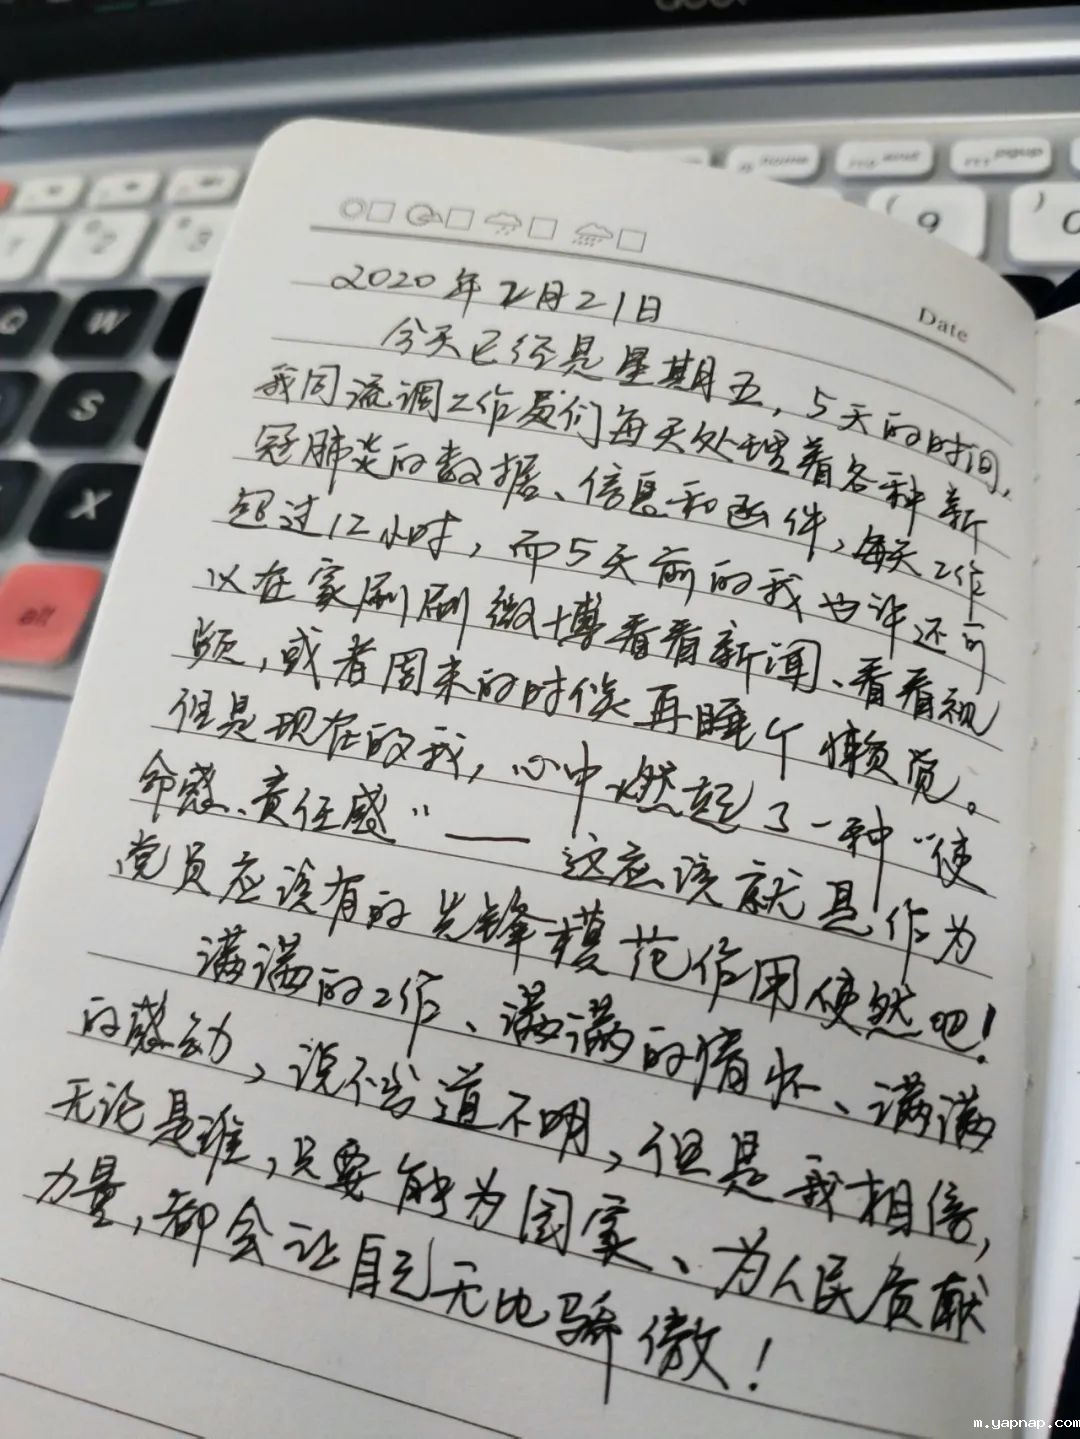 Date
2020年2月21日
今天已经是星期五，5天的时间，
我同流调工作员们每天处理着各种新
冠肺炎的数据、信息和函件，每天工作
超过12小时，而5天前的我也许还可
以在家刷刷微博看看新闻、看看视
频，或者周末的时候再睡个懒觉。
但是现在的我，心中燃起了一种“使
命感、责任感”——这应该就是作为
党员应该有的先锋模范作用使然吧！
满满的工作、满满的情怀、满满
的感动，说不尽道不明，但是我相信，
无论是谁，只要能为国家、为人民贡献
力量，都会让自己无比骄傲！
Q
W
S
X
alt
2
3
9
0
home
end
pgup
m.yapnap.com